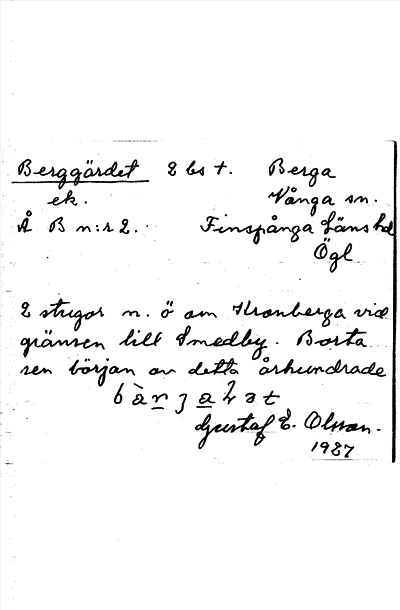 Berggärdet 2 bst. Berga
ek. Vånga sn.
Å B n:r 2. Finspånga läns hd
Ögl
2 stugor n. ö om Kronberga vid
gränsen till Smedby. Borta
sen början av detta århundrade
Gustaf E. Olsson.
1937